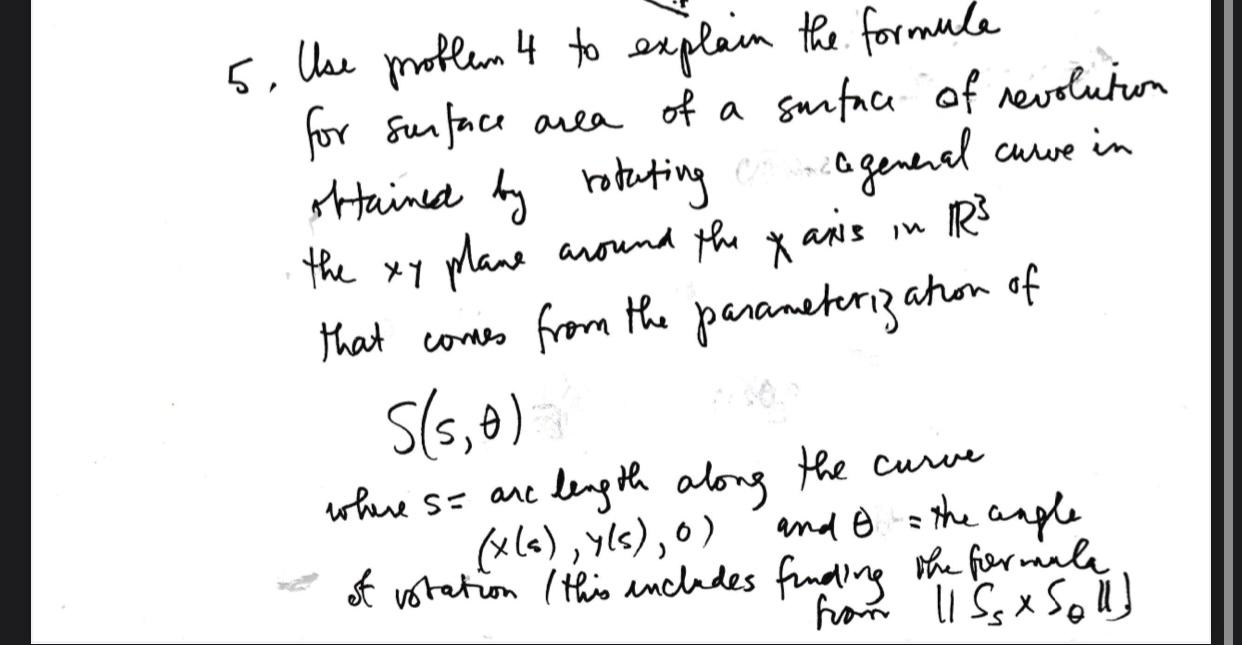 5. Use problem 4 to explain the formula
for surface area of a surface of revolution
obtained by rotating a general curve in
the xy plane around the x axis in ℝ³
that comes from the parameterization of
S(s,θ)
where s = arc length along the curve
(x(s), y(s), 0) and θ = the angle
of rotation (this includes finding the formula
from || S_s × S_θ ||)